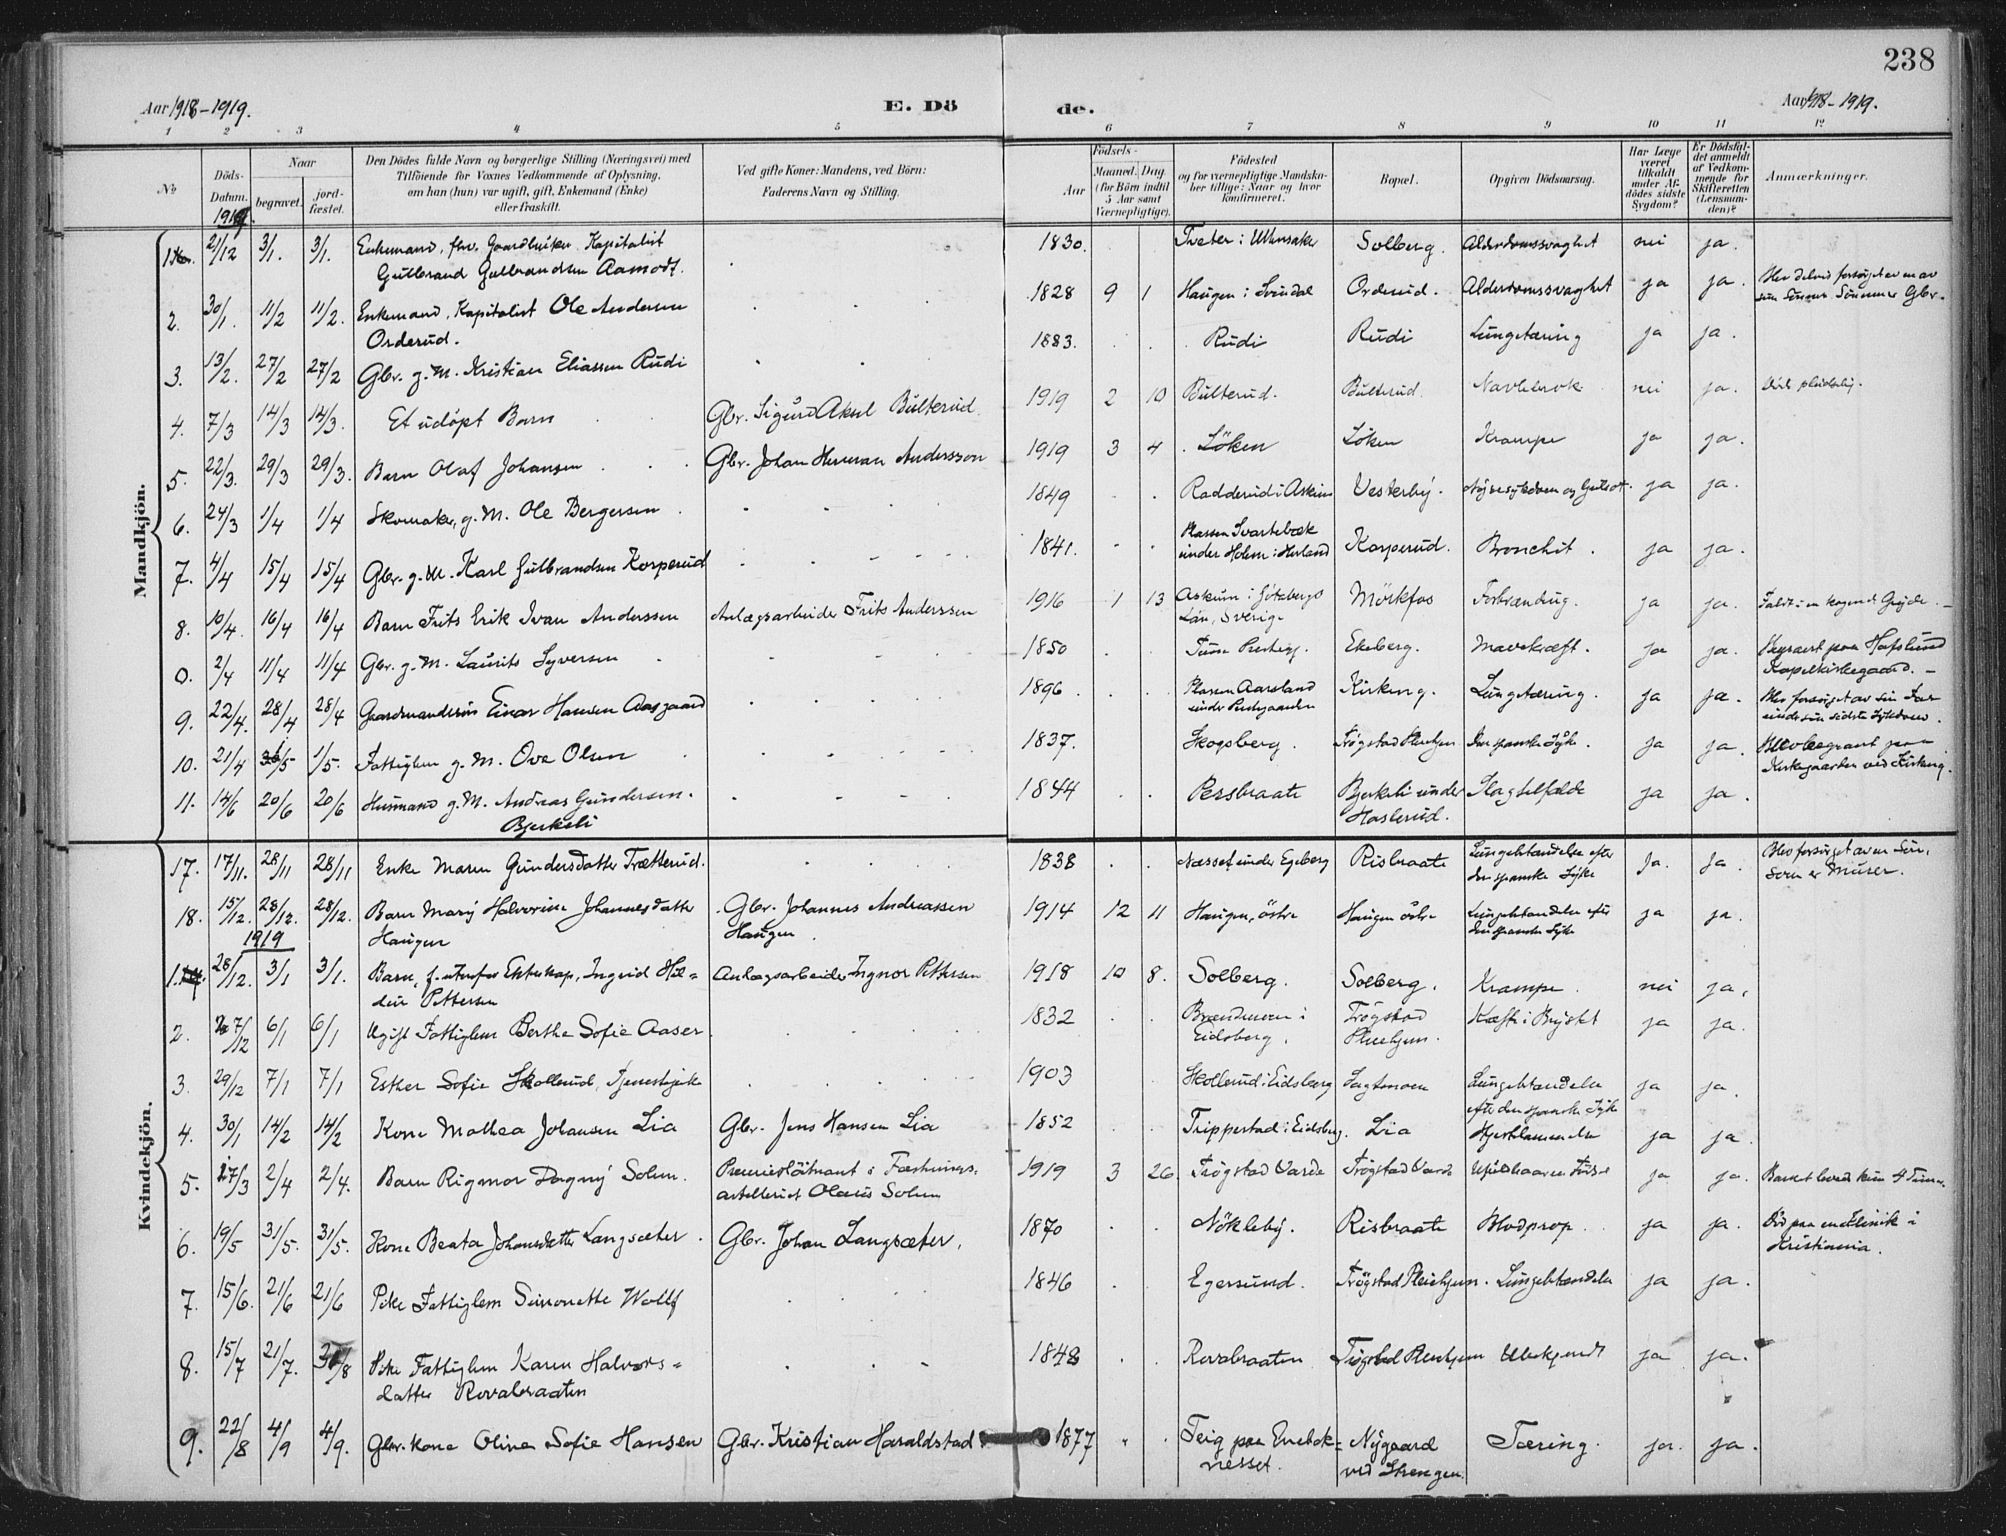 238
Aar 1918-1919.
E. Dö
de.
Aar 1918-1919.
1 2 3 4 5 6 7 8 9 10 11 12
No
Döds-
Datum.
Naar
begravet.
jord-
fæstet.
Den Dödes fulde Navn og borgerlige Stilling (Næringsvei) med
Tilföiende for Voxnes Vedkommende af Oplysning,
om han (hun) var ugift, gift, Enkemand (Enke)
eller fraskilt.
Ved gifte Koner: Mandens, ved Börn:
Faderens Navn og Stilling.
Födsels-
Aar
Maaned. Dag.
(for Börn indtil
5 Aar samt
Værnepligtige).
Födested
og for værnepligtige Mandska-
ber tillige: Naar og hvor
konfirmeret.
Bopæl.
Opgiven Dödsaarsag.
Har Læge
været
tilkaldt
under Af-
dödes sidste
Sygdom?
Er Dödsfal-
det anmeldt
af Vedkom-
mende for
Skifteretten
(Lensman-
den)?
Anmærkninger.
Mandkjön.
1919
1. 21/12 3/1. 3/1. Enkemand, fhv. Gaardbruker Kapitalist
Gulbrand Gulbrandsen Aamodt. 1830. Tveter i Ullensaker Solberg. Alderdomssvaghet nei ja.
2. 30/1. 11/2 11/2. Enkemand, Kapitalist Ole Andersen
Orderud. 1828 9 1 Haugen i Svindal Orderud. Alderdomssvaghet ja ja. Blev delvis forsørget av en av
sine Sønner Gbr.
3. 13/2. 27/2 27/2 Gbr. g. M. Kristian Eliassen Rudi 1883. Rudi Rudi Lungetæring ja ja.
4. 7/3 14/3 14/3. Et udöpt Barn Gbr. Sigurd Aksel Bulterud 1919 2 10 Bulterud. Bulterud. Navlebrok nei ja. Död pludselig.
5. 22/3. 29/3 29/3. Barn Olaf Johansen Gbr. Johan Herman Andersson 1919 3 4 Löken Löken Krampe ja ja.
6. 24/3 1/4 1/4 Skomaker, g. M. Ole Bergersen 1849 Radderud i Askim Vesterby. Nyresykdom og ja ja.
7. 4/4 15/4 15/4 Gbr. g. M. Karl Gulbrandsen Korperud 1841. Plassen Svartebæk
under Holem i Herland Korperud. Bronchit. ja ja.
8. 10/4. 16/4 16/4 Barn Frits Erik Ivan Anderssen Anlægsarbeider Frits Anderssen 1916 1 13 Askum i Göteborgs
Län, Sverige Mörkfos Forbrænding. ja ja. Faldt i en kogende Gryde.
0. 2/4 11/4 11/4 Gbr. g. M. Laurits Syversen 1850 Tune Prestegj. Ekeberg. Mavekræft. ja ja. Begravet paa Hafslund
Kapelkirkegaard.
9. 22/4. 28/4 28/4 Gaardmandssön Einar Hansen Aasgaard 1896 Plassen Aarsland
under Prestgaarden Kirkeng. Lungetæring. ja ja. Blev forsørget av sin Far
under sin sidste Sykdom.
10. 21/4 30/5 1/5. Fattiglem g. M. Ove Olsen 1837. Skogsberg. Trögstad Pleiehjem Den spanske Syke. ja ja. Blev begravet paa
Kirkegaarden ved Kirkeng.
11. 14/6 20/6 20/6 Husmand g. M. Andreas Gundersen
Bjerkeli 1844 Persbraate Bjerkeli under
Haslerud. Slagtilfælde ja ja.
Kvindekjön.
17. 17/11. 28/11 28/11 Enke Maren Gundersdatter Trætterud. 1838 Næsset under Egeberg Risbraate Lungebtændelse efter
den spanske Syke Ja. Ja. Blev forsørget av en Sön,
som er Murer.
18. 15/12. 28/12. 28/12. Barn Mary Halvorine Johannesdatter
Haugen Gbr. Johannes Andreassen
Haugen. 1914 12 11 Haugen, östre Haugen östre Lungebtændelse efter
den spanske Syke ja ja.
1919
1. 28/12. 3/1 3/1. Barn, f. utenfor Ekteskap, Ingrid Hil-
dur Pettersen Anlægsarbeider Ingvor Pettersen 1918 10 8. Solberg. Solberg. Krampe. nei ja.
2. 27/12 6/1 6/1 Ugift Fattiglem Berthe Sofie Aaser. 1832 Brændmoen i
Eidsberg. Trögstad
Pleiehjem. Kræft i Brystet ja ja.
3. 29/12 7/1 7/1 Esther Sofie Skollerud, Tjenestepike 1903 Skollerud i Eidsberg Sagtmoen Lungebtændelse
efter den spanske Syke ja ja.
4. 30/1 14/2 14/2 Kone Mathea Johansen Lia Gbr. Jens Hansen Lia 1852 Trippestad i Eidsberg. Lia Hjertelammelse ja ja.
5. 27/3 2/4 2/4. Barn Rigmor Dagny Solem. Premierlöitnant i Fæstnings-
artilleriet Olaus Solem 1919 3 26. Trögstad Varde Trögstad Varde ja ja. Barnet levede kun 4 Timer.
6. 19/5 31/5. 31/5. Kone Beata Johansdatter Langsæter. Gbr. Johan Langsæter. 1870 Nökleby. Risbraate Blodprop. ja ja. Död paa en Klinik i
Kristiania.
7. 15/6. 21/6 21/6 Pike Fattiglem Simonette Wolff 1846 Egersund. Trögstad Pleiehjem. Lungebtændelse ja ja.
8. 15/7 21/7. 31/8 Pike Fattiglem Karen Halvors-
datter Rovabraaten 1848 Rovabraaten Trögstad Pleiehjem Ubekjendt ja ja.
9. 22/8 4/9 4/9. Gbr. kone Oline Sofie Hansen Gbr. Kristian Haraldstad 1877 Teig paa Enebak-
nesset. Nygaard
ved Strengen. Tæring. ja. ja.